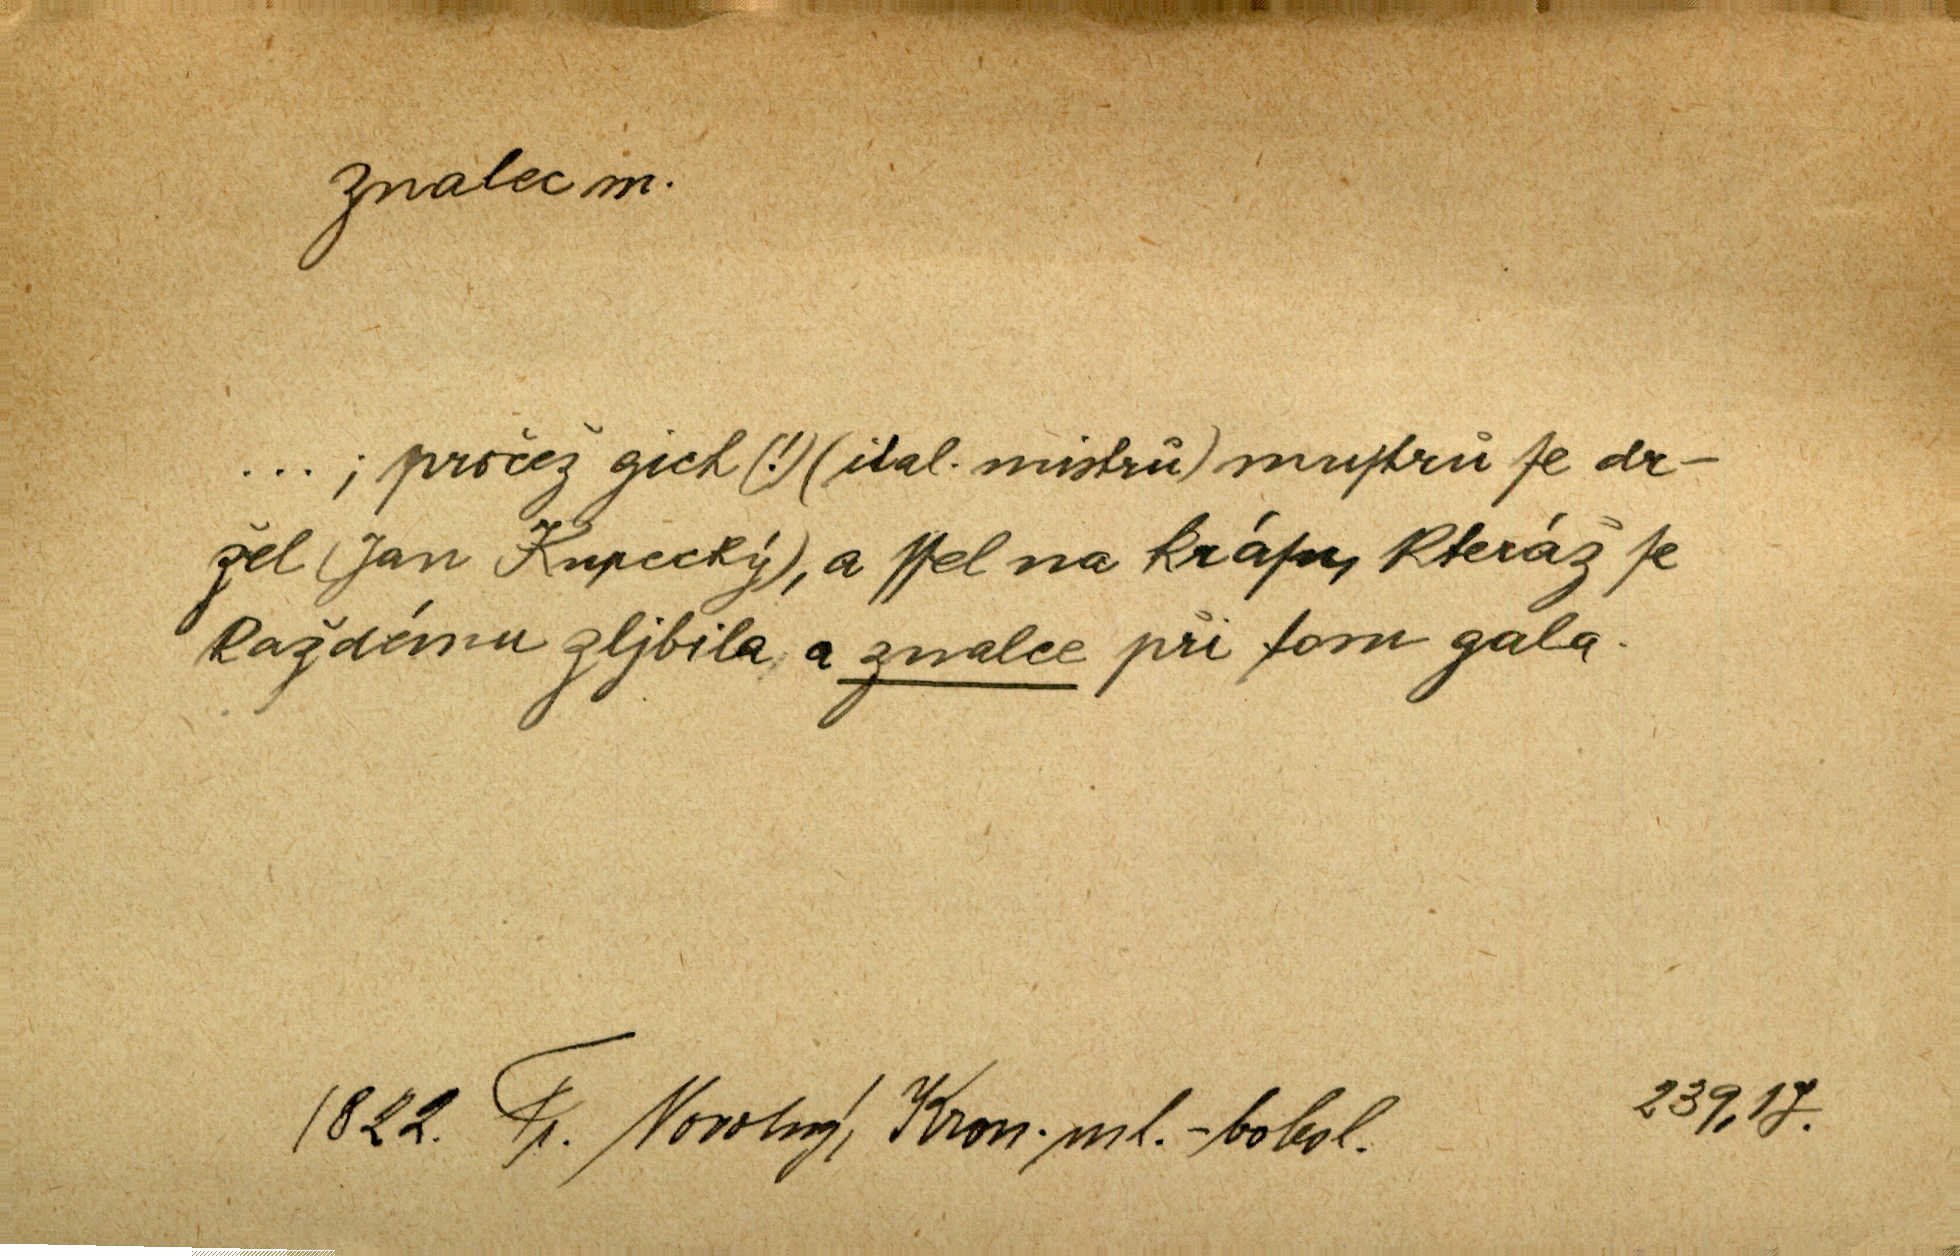 znalec m.
...; pročež gich (!) (ital. mistrů) muſtrů ſe dr-
žel (Jan Kupecký), a ſſel na kráſu, kteráž ſe
každému zljbila, a znalce při tom gala.
1822. Fr. Novotný, Kron. ml. - bolesl.
239,17.